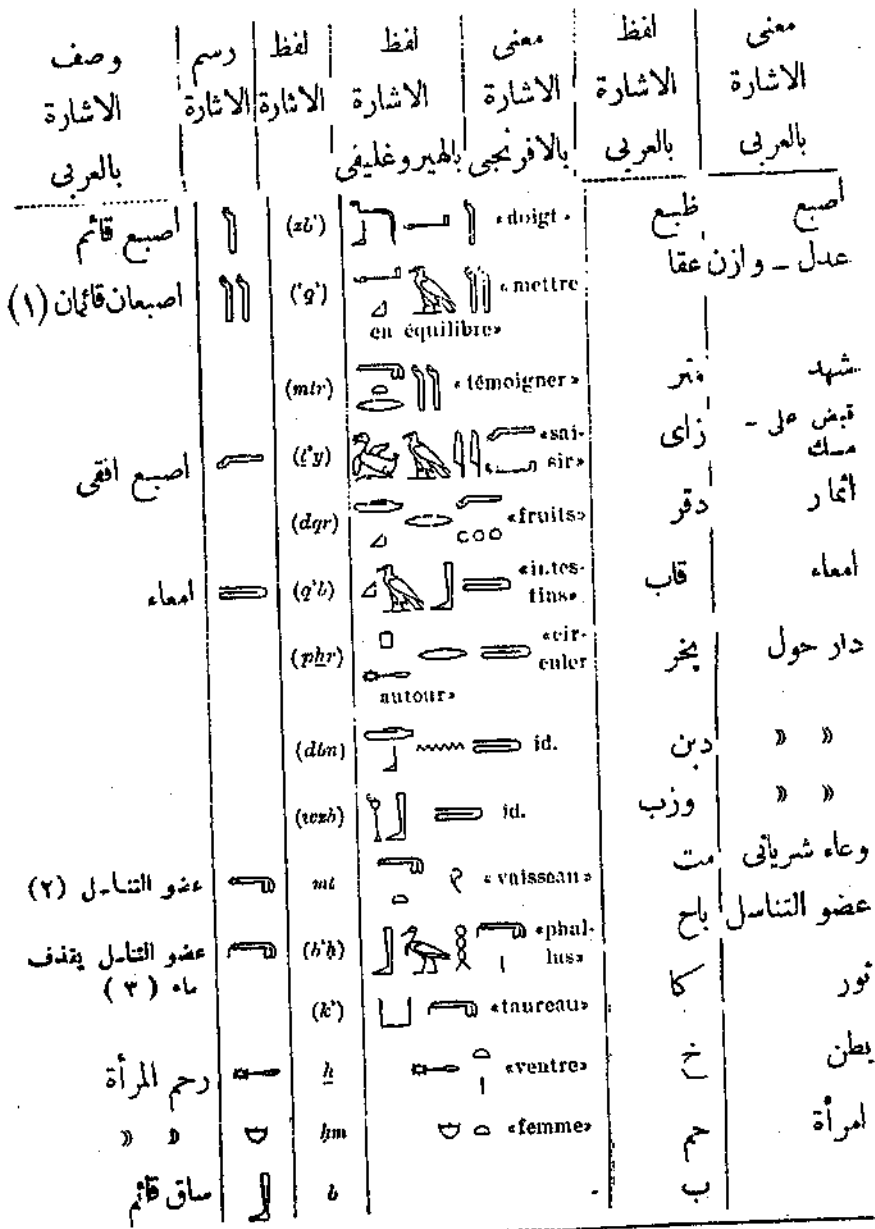 معنى لفظ معنى لفظ لفظ رسم وصف
الاشارة الاشارة الاشارة الاشارة الاشارة الاشارة الاشارة
بالعربى بالعربى بالافرنجى بالهيروغليفى بالعربى
اصبع ظبع «doigt» (zb') اصبع قائم
عدل ــ وازن عقا «mettre en équilibre» ('q') اصبعان قائمان (١)
شهد متر «témoigner» (mtr)
قبض على - مسك زاى «saisir» (ṯ'y) اصبع افقى
اثمار دقر «fruits» (dqr)
امعاء قاب «intestins» (q'b) امعاء
دار حول پخر «circuler autour» (pẖr)
» » دبن id. (dbn)
» » وزب id. (wzb)
وعاء شريانى مت «vaisseau» mt عضو التناسل (٢)
عضو التناسل باح «phallus» (b'ḥ) عضو التناسل يقذف ماء (٣)
ثور كا «taureau» (k')
بطن خ «ventre» ẖ رحم المرأة
امرأة حم «femme» ḥm » »
ب b ساق قائم